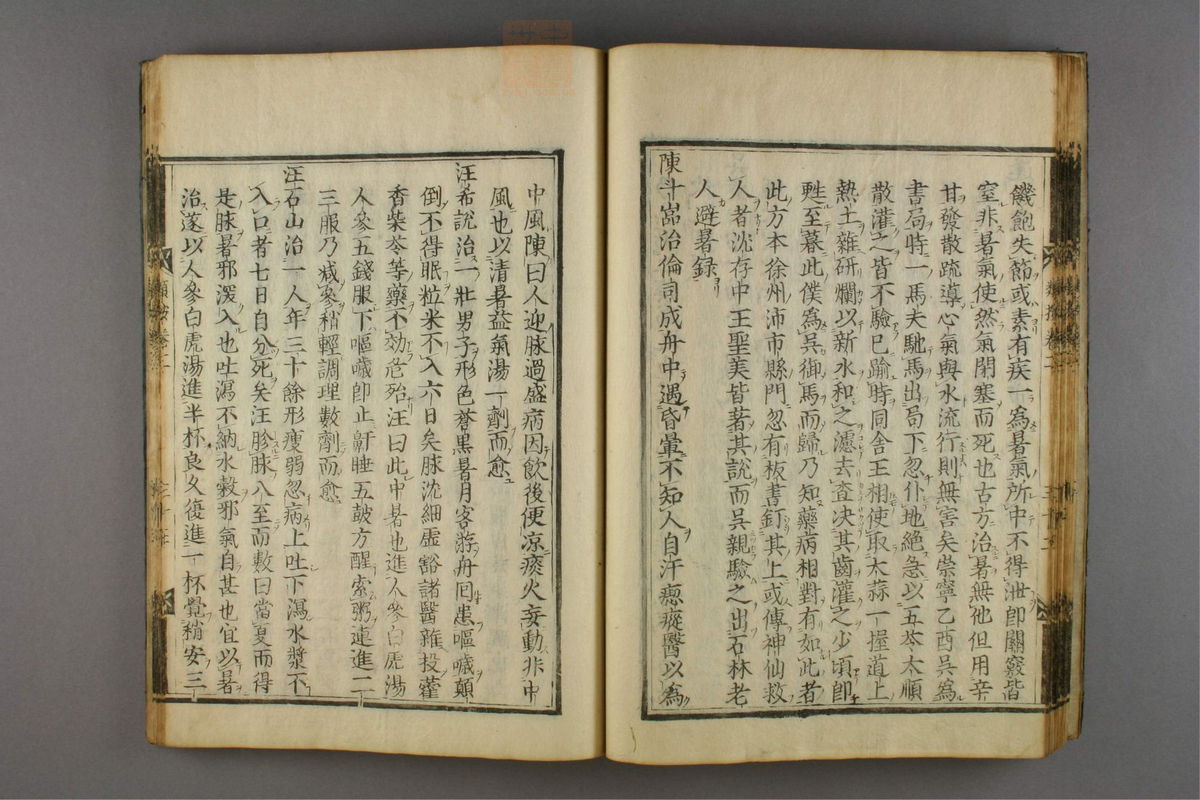 饑飽失節或素有疾一爲暑氣所中不得泄卽關竅皆
窒非暑氣使然氣閉塞而死也古方治暑無他但用辛
甘發散疏導心氣與水流行則無害矣崇寧乙酉吳爲
書局時一馬夫馳馬出局下忽仆地絶急以五苓大順
散灌之皆不驗已踰時同舍王相使取大蒜一握道上
熱土雜研爛以新水和之濾去査决其齒灌之少頃卽
甦至暮此僕爲吳御馬而歸乃知藥病相對有如此者
此方本徐州沛市縣門忽有板書釘其上或傳神仙救
人者沈存中王聖美皆著其說而吳親驗之出石林老
人避暑録
陳斗嵓治倫司成舟中遇昏暈不知人自汗瘛瘲醫以爲
中風陳曰人迎脉過盛病因飲後便凉痰火妄動非中
風也以清暑益氣湯一劑而愈
汪希說治一壯男子形色蒼黒暑月客游舟回患嘔噦顛
倒不得眠粒米不入六日矣脉沈細虚豁諸醫雜投藿
香柴苓等藥不効危殆汪曰此中暑也進人參白虎湯
人參五錢服下嘔噦卽止鼾睡五鼓方醒索粥連進二
三服乃减參稍輕調理數劑而愈
汪石山治一人年三十餘形瘦弱忽病上吐下瀉水漿不
入口者七日自分死矣汪胗脉八至而數曰當夏而得
是脉暑邪深入也吐瀉不納水穀邪氣自甚也宜以暑
治遂以人參白虎湯進半杯良久復進一杯覺稍安三